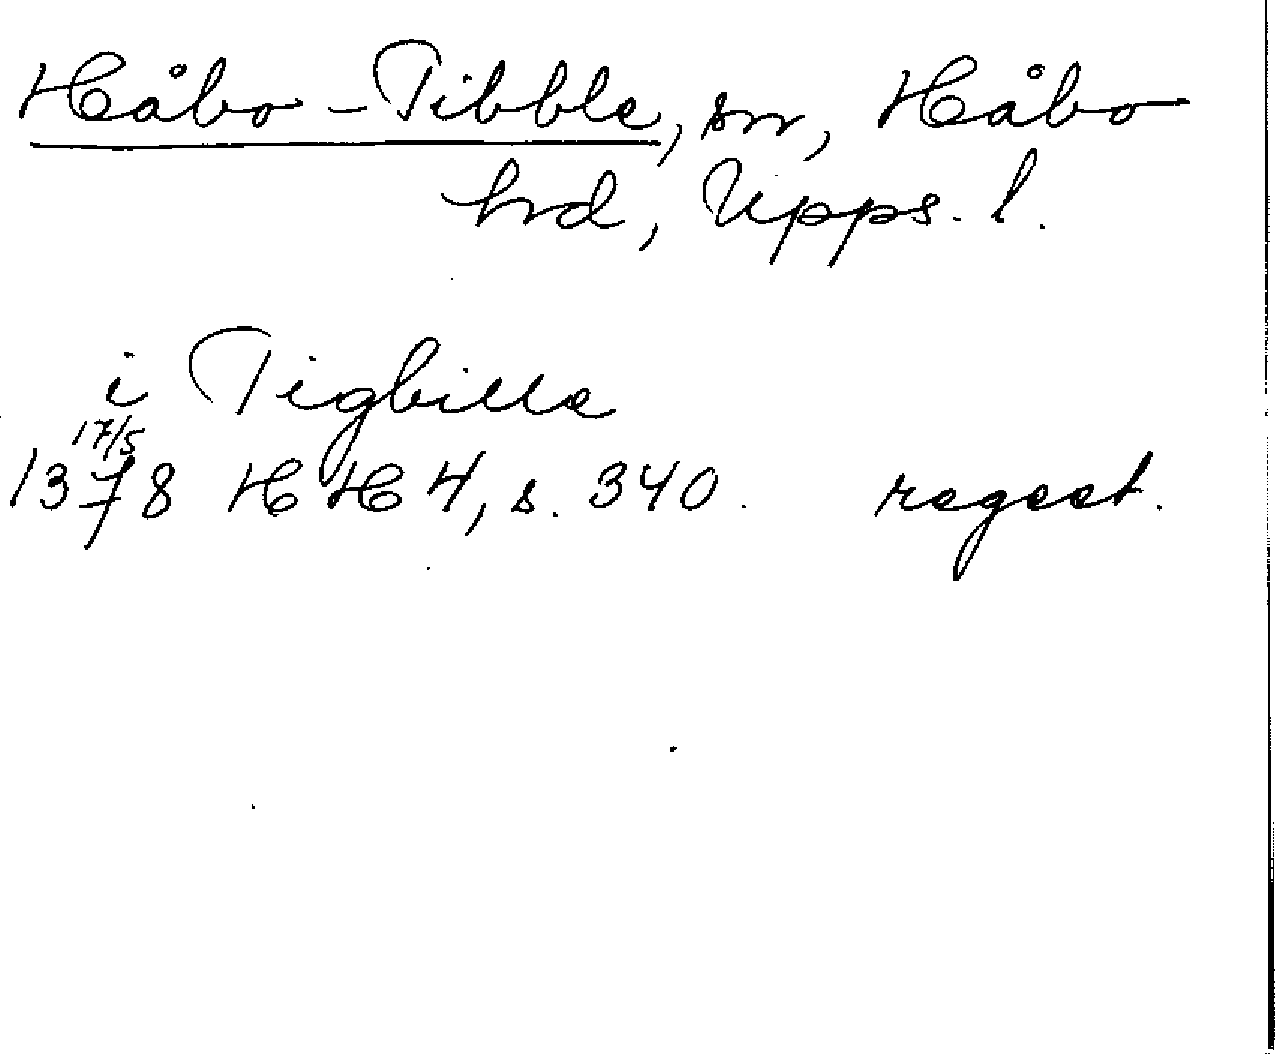 Håbo-Tibble, sn, Håbo
hd, Upps. l.
i Tigbille
17/5
1378 HH 4, s. 340. regest.